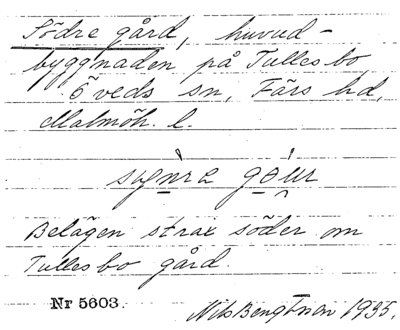 Södre gård, huvud-
byggnaden på Tullesbo
Öveds sn, Färs hd,
Malmöh. l.
Belägen strax söder om
Tullesbo gård.
Nr 5603.
Nils Bengtsson 1935.